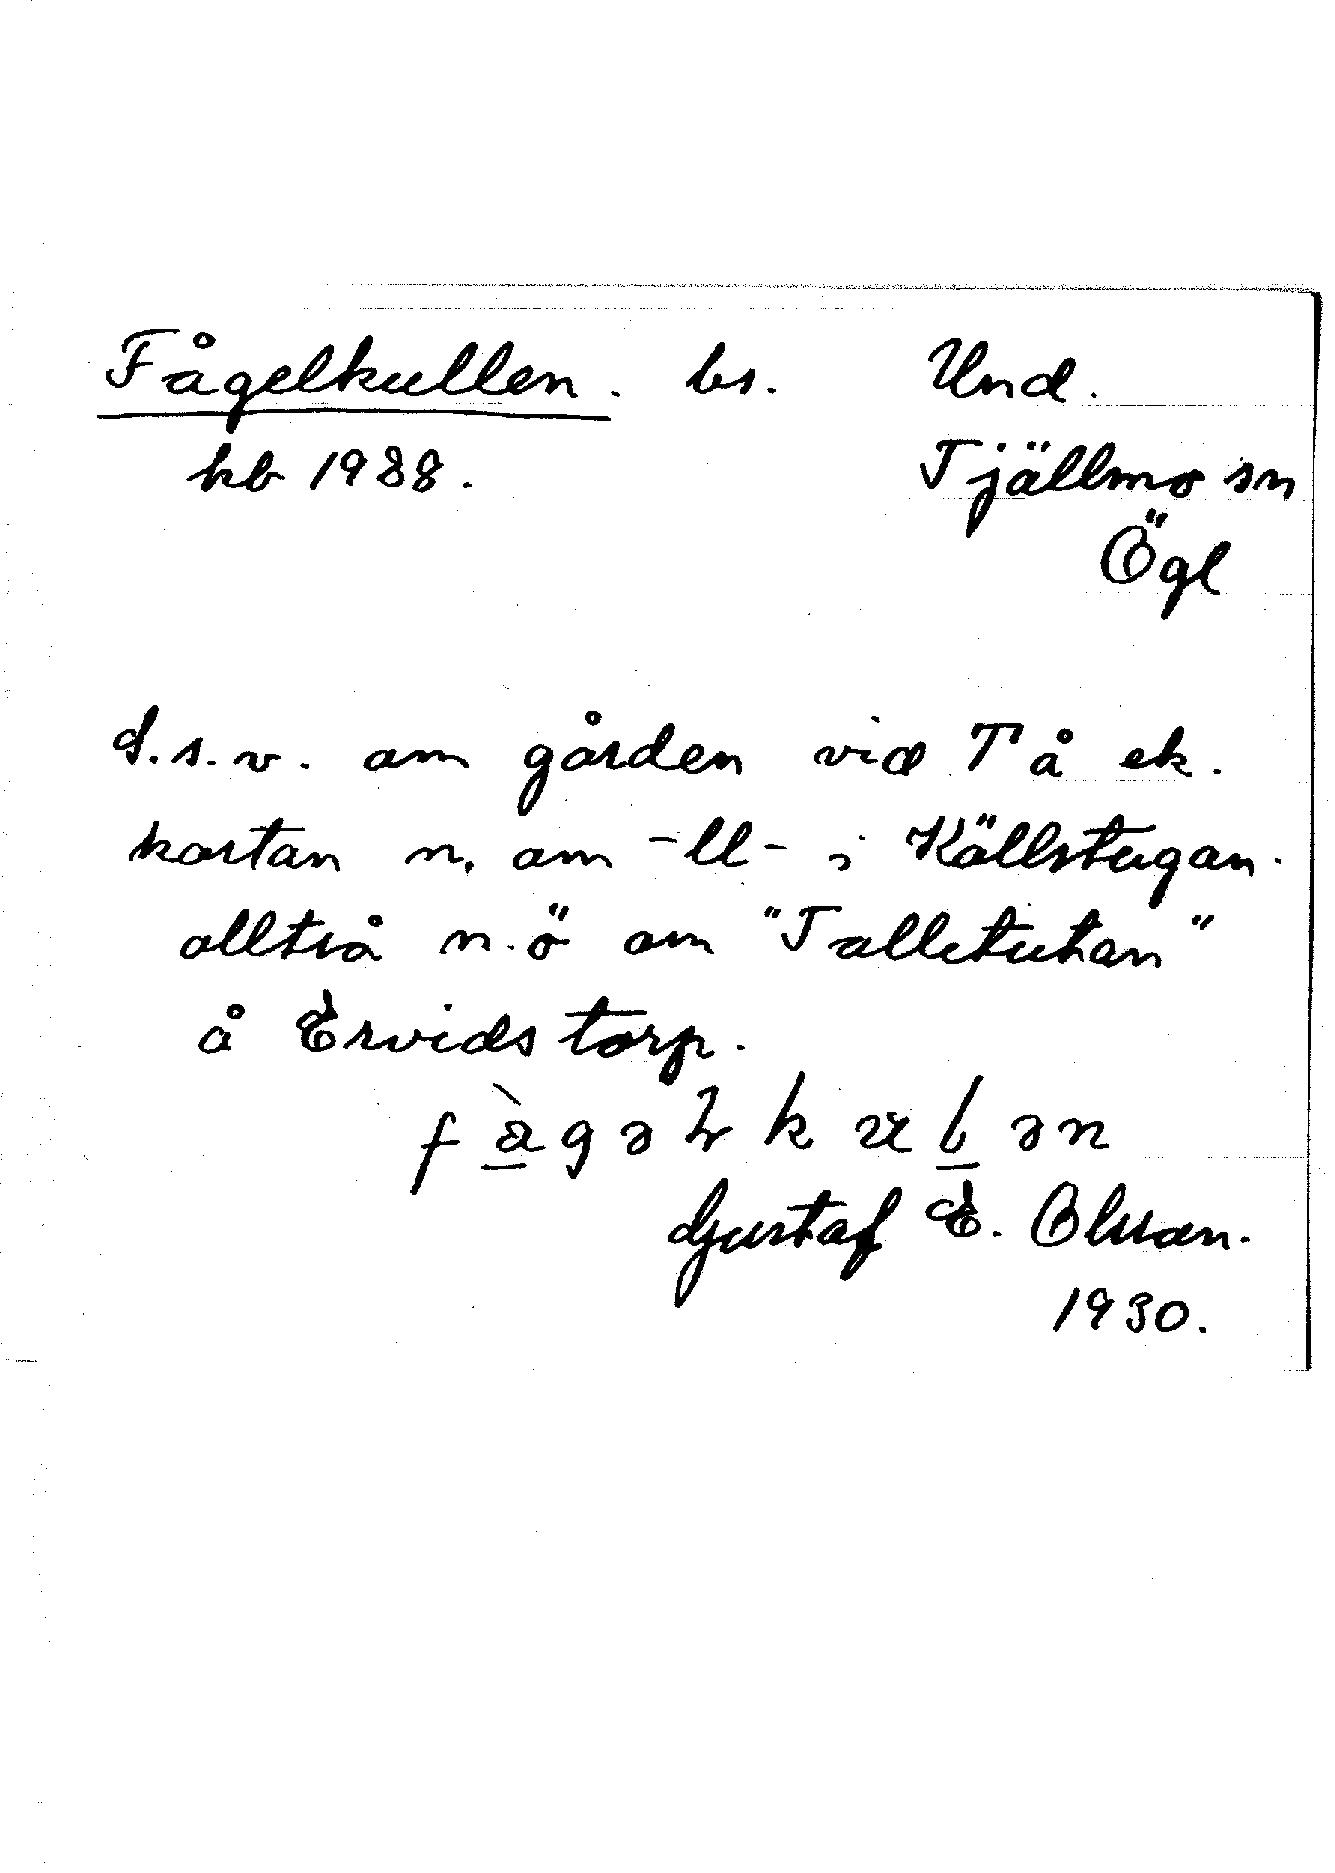 Fågelkullen. bs. Und.
kb 1988. Tjällmo sn
Ögl
S.s.v. om gården vid Tå ek.
kartan n. om -ll- i Källstugan.
alltså n.ö om "Talletutan"
å Ervidstorp.
Gustaf E. Olsson.
1930.